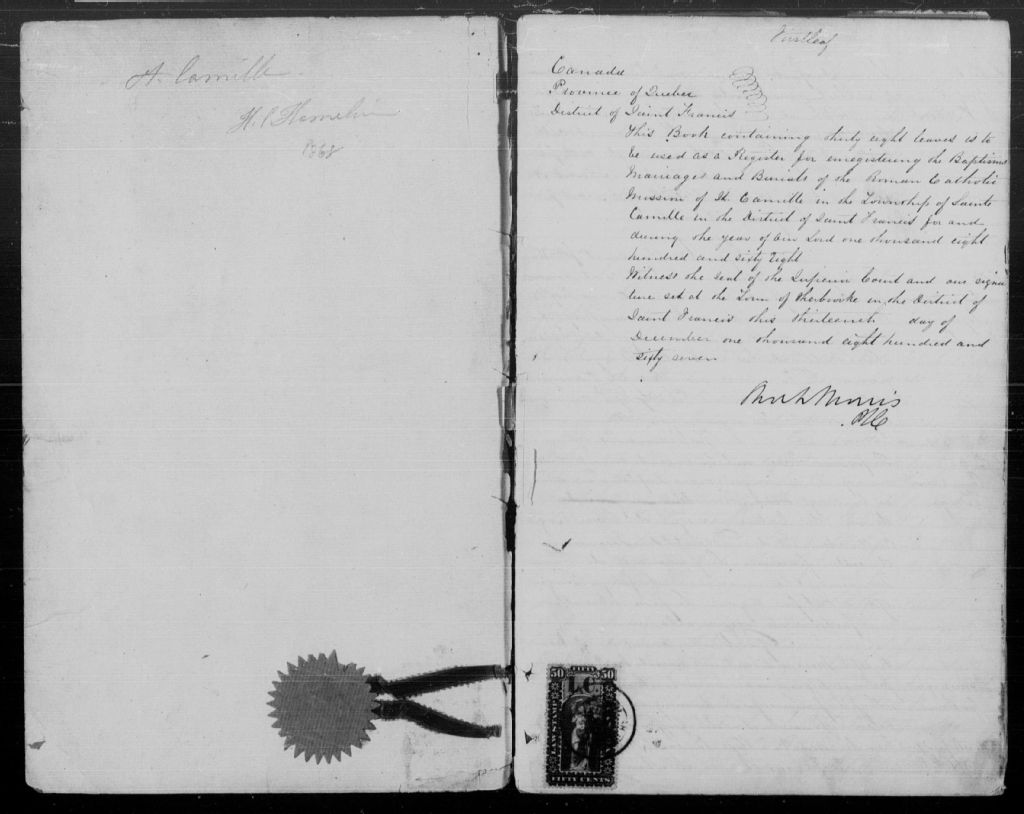 St. Camille
1868
First leaf
Canada
Province of Quebec
District of Saint Francis
This Book containing thirty eight leaves is to
be used as a Register for enregistering the Baptisms
Marriages and Burials of the Roman Catholic
Mission of St. Camille in the Township of Saint
Camille in the District of Saint Francis for and
during the year of our Lord one thousand eight
hundred and sixty Eight
Witness the seal of the Superior Court and our signa
ture set at the Town of Sherbrooke in the District of
Saint Francis this thirteenth day of
December one thousand eight hundred and
sixty seven
Morris
FIFTY
50 50
L.C.
LAW STAMP
FIFTY CENTS